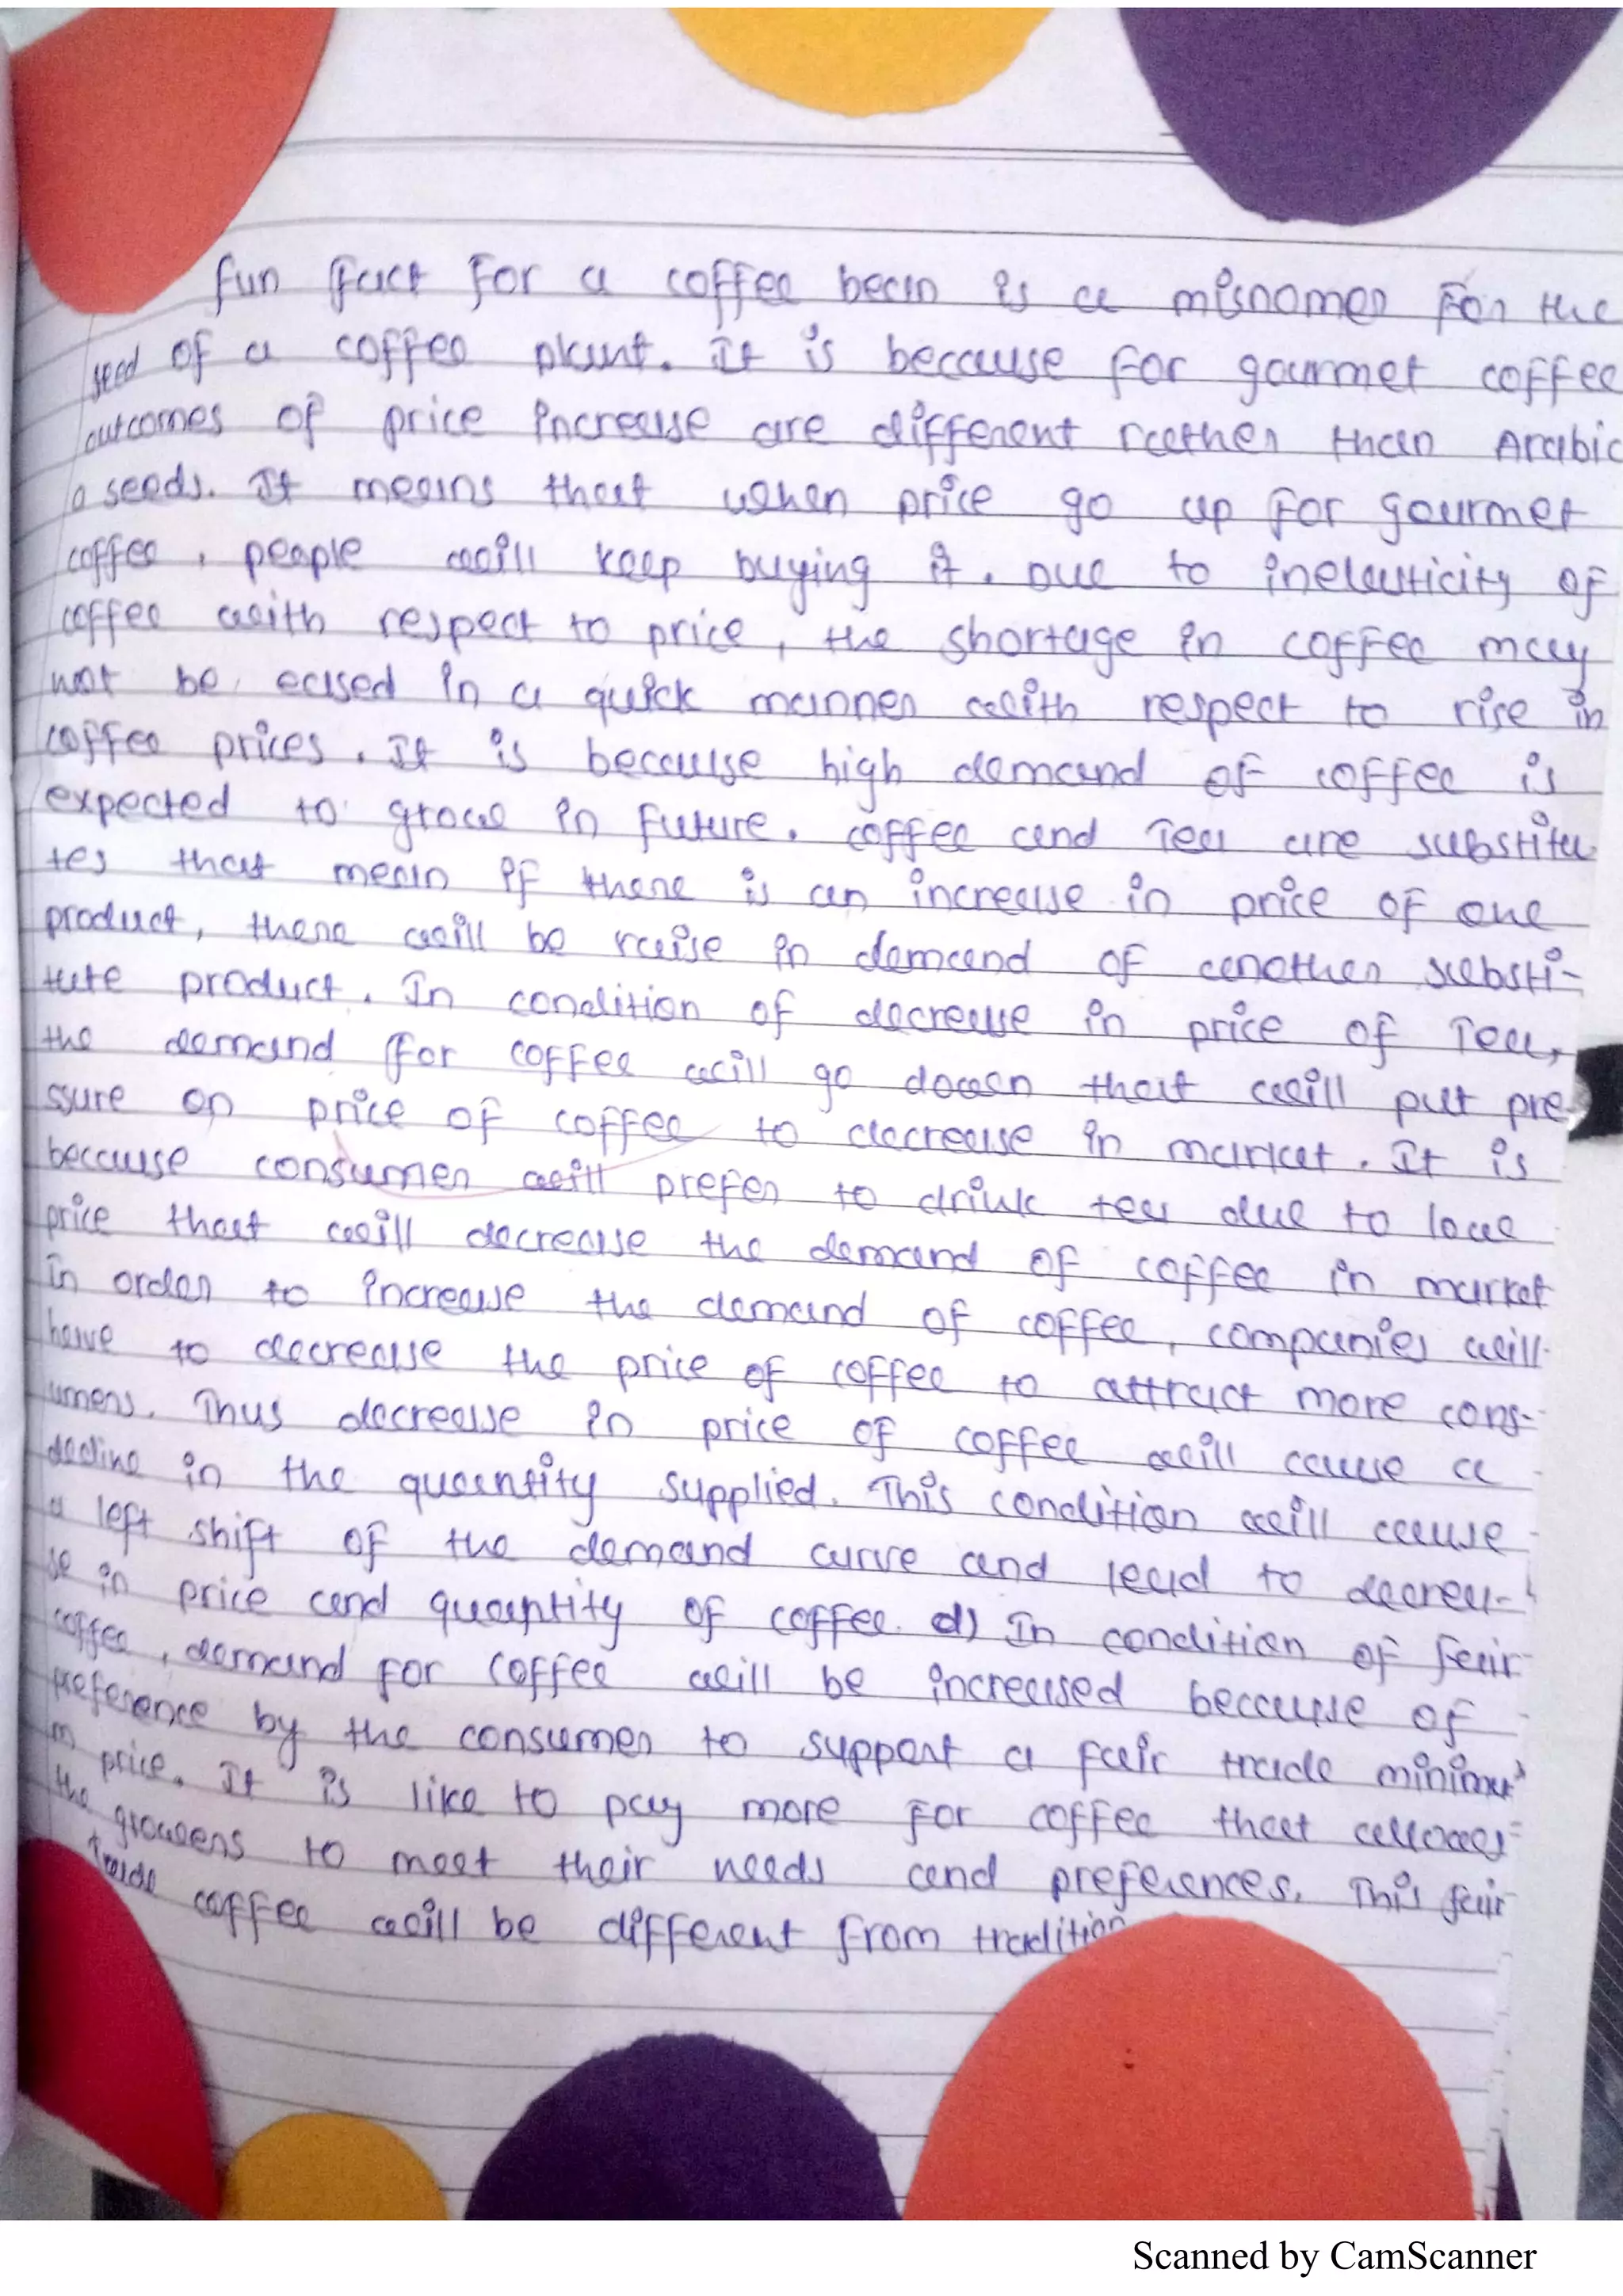 fun fact for a coffee bean is a misnomer for the
seed of a coffee plant. It is because for gourmet coffee
outcomes of price increase are different rather than Arabic
a seeds. It means that when price go up for gourmet
coffee, people will keep buying it. Due to inelasticity of
coffee with respect to price, the shortage in coffee may
not be eased in a quick manner with respect to rise in
coffee prices. It is because high demand of coffee is
expected to grow in future. coffee and Tea are substitu
tes that mean if there is an increase in price of one
product, there will be raise in demand of another substi-
tute product. In condition of decrease in price of Tea,
the demand for coffee will go down that will put pre
ssure on price of coffee to decrease in market. It is
because consumer will prefer to drink tea due to low
price that will decrease the demand of coffee in market
in order to increase the demand of coffee, companies will
have to decrease the price of coffee to attract more cons-
umers. Thus decrease in price of coffee will cause a
decline in the quantity supplied. This condition will cause
a left shift of the demand curve and lead to decrea-
se in price and quantity of coffee. d) In condition of fair
coffee, demand for coffee will be increased because of
preference by the consumer to support a fair trade minimu
m price. It is like to pay more for coffee that allows
the growers to meet their needs and preferences. This fair
trade coffee will be different from tradition
Scanned by CamScanner